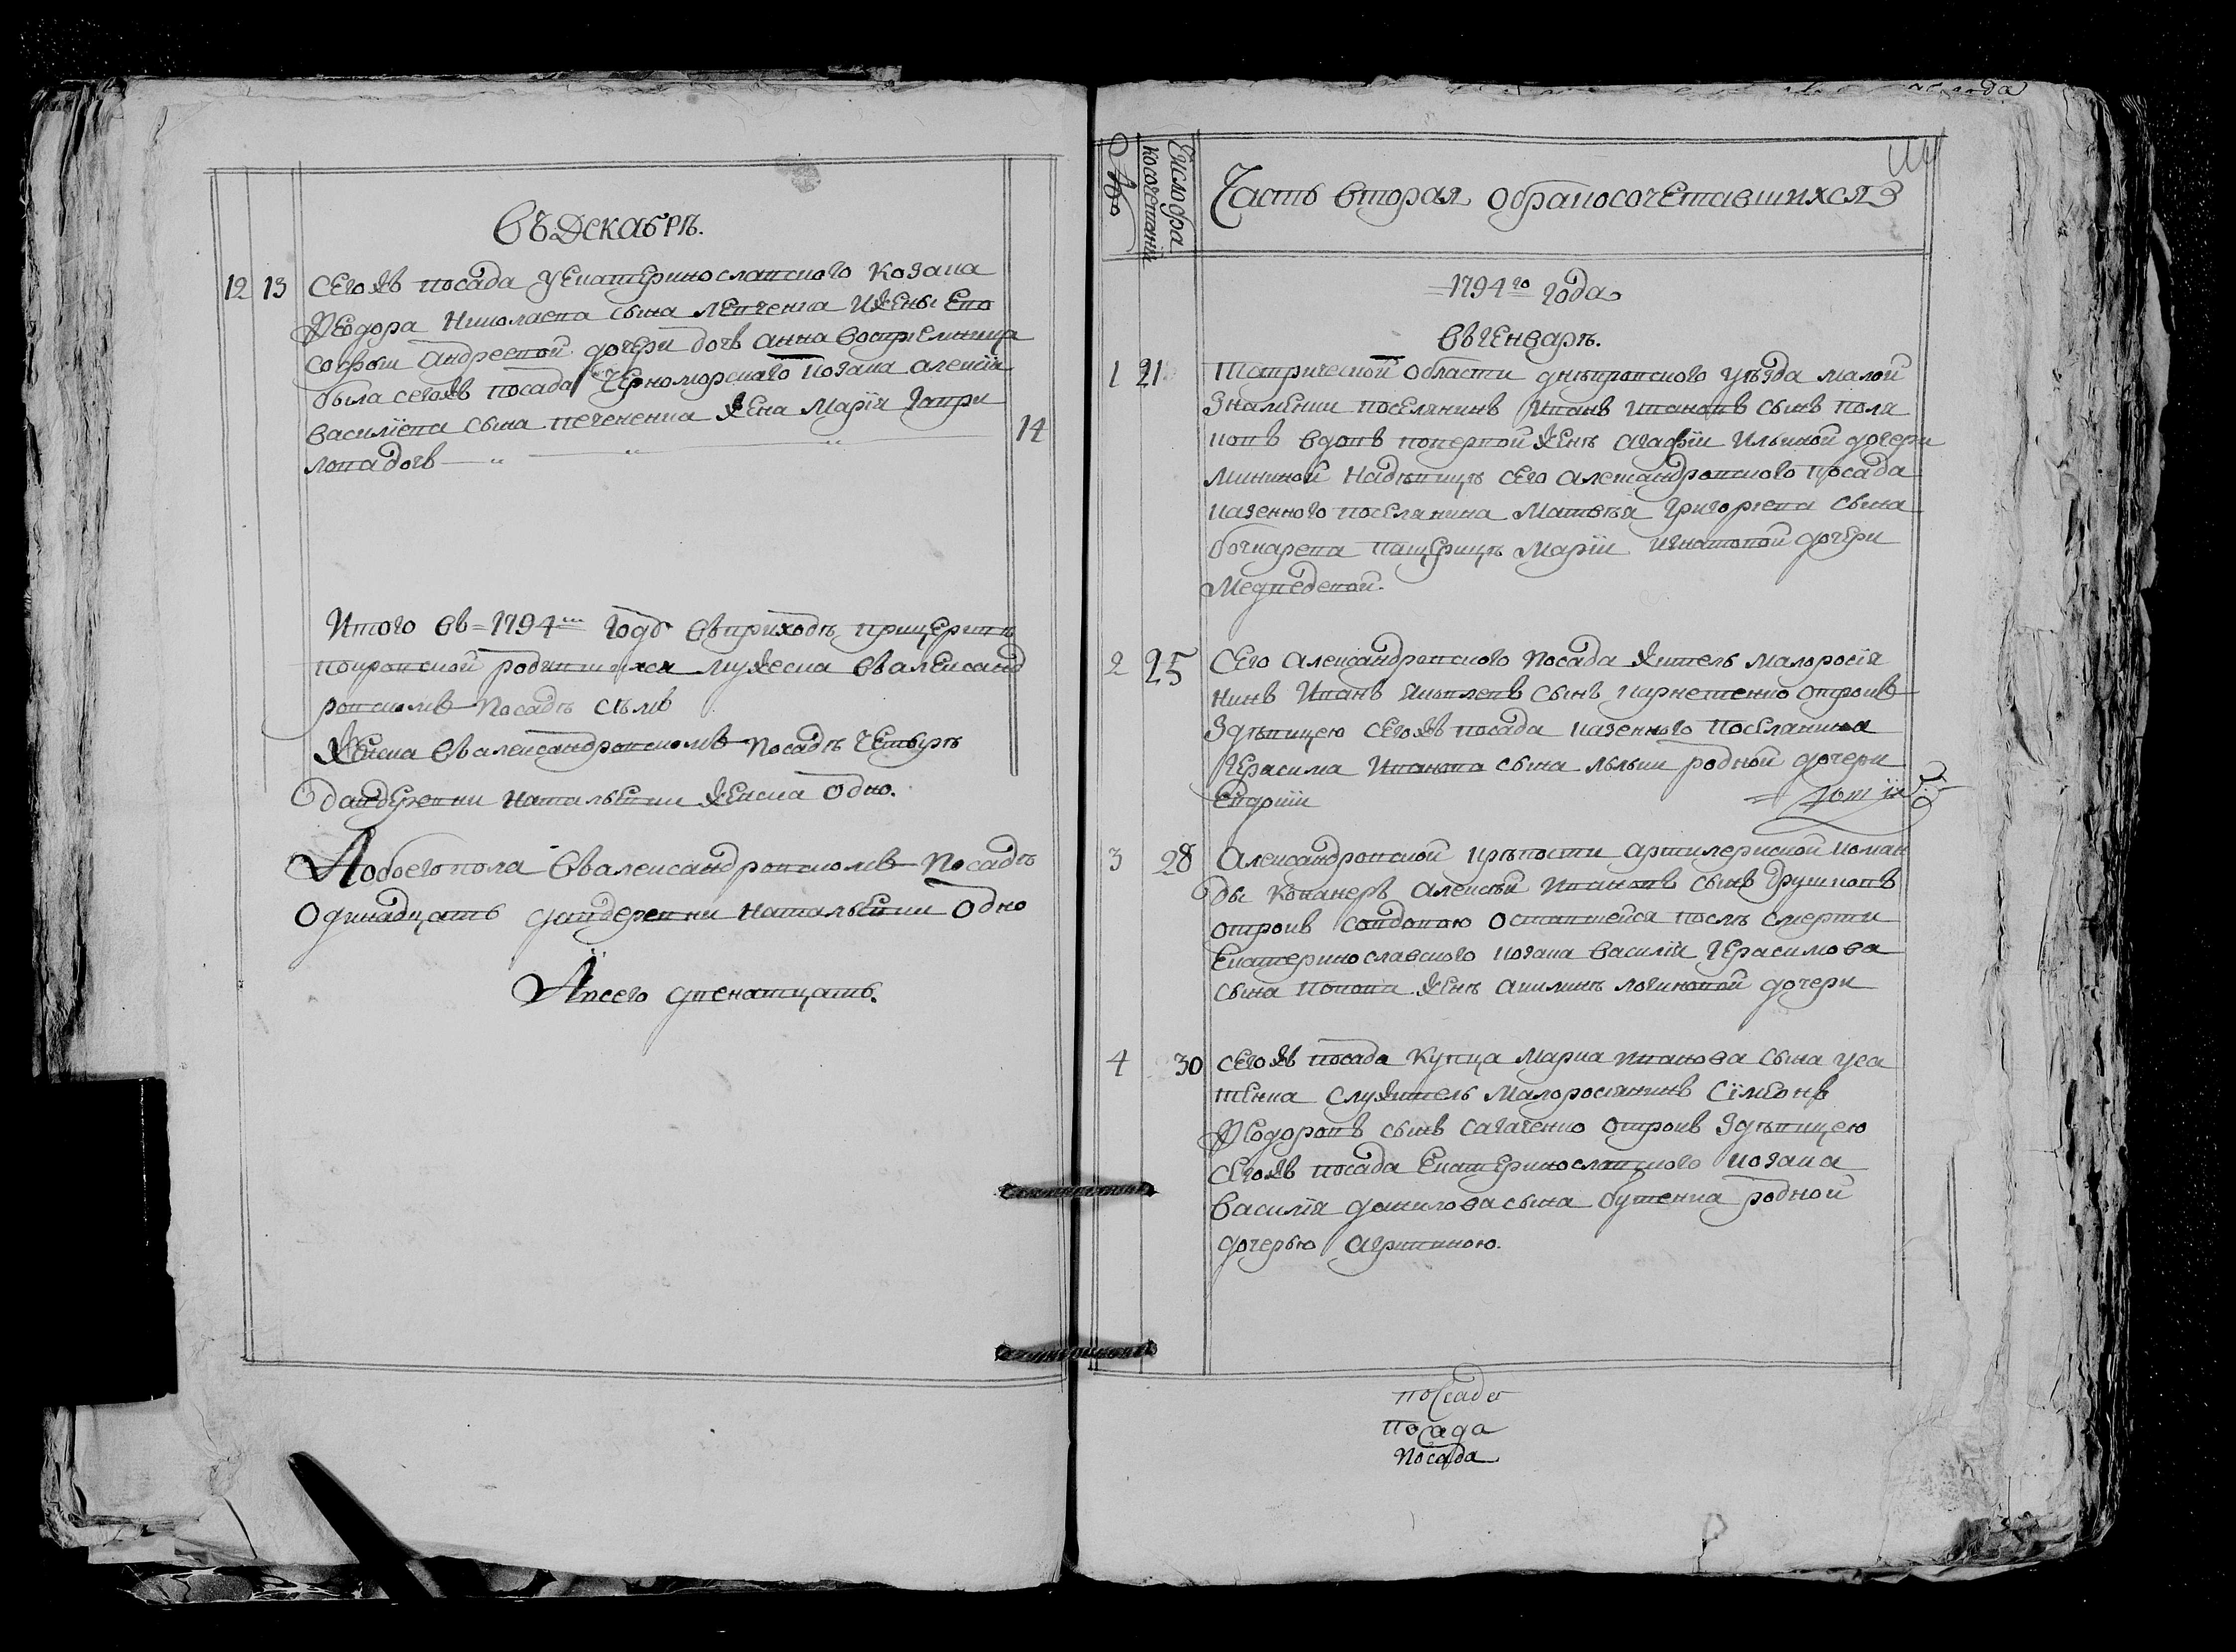 Въ Декабрѣ.
12 13 Сегожъ посада у Екатеринославского козака
Федора Николаева сына Левченка и жены его
Софыи Андреевой дочери дочь Анна восприемница
была сегожъ посада Черноморского козака Алексѣя
Василіева сына Печененка жена Марія Гаври
лова дочь 14
Итого въ 1794м годѣ въ приходѣ при церквѣ
покровской родившихся мужеска въ Александ
ровскомъ посадѣ съмъ
Женска въ Александровскомъ посадѣ четыръ
Да въ деревни Натальевки женска одно.
А обоего пола въ Александровскомъ посадѣ
одинадцать да в деревни Натальевки одно
А всего двенатцать.
посада
№
Число бра
косочетанія
Часть вторая о бракосочетавшихся
1794го года
Въ генварѣ.
1 21 Таврической области днѣпровского уѣзда малой
Знаменки поселянинъ Иванъ Ивановъ сынъ Поля
ковъ вдовъ поперъвой женѣ Агафіи Ильиной дочери
Мининой на дѣвицѣ сего Александровского посада
казенного поселянина Матвѣя Григоріева сына
Бочкарева пащерицѣ Маріи Игнатовой дочери
Медведевой.
2 25 Сего Александровского посада житель малоросія
нинъ Иванъ Яковлевъ сынъ отрокъ
З дѣвицею сегожъ посада казенного поселянина
Герасима Иванова сына родной дочери
Евдокіи
3 28 Александровской крѣпости артилериской коман
ды конанеръ Алексѣй Ивановъ сынъ Грушковъ
отрокъ со вдовою оставшейся послѣ смерти
Екатеринославского козака Василія Герасимова
сына Попова женѣ Акилинѣ Логиновой дочери
4 30 Сегожъ посада купца Марка Иванова сына Уса
тенка служитель малоросіянинъ Сімеонъ
Федоровъ сынъ Сагаченко отрокъ З дѣвицею
сегожъ посада Екатеринославского козака
Василія Данилова сына Бутенка родной
дочерью Агрипиною.
посада
посада
посада